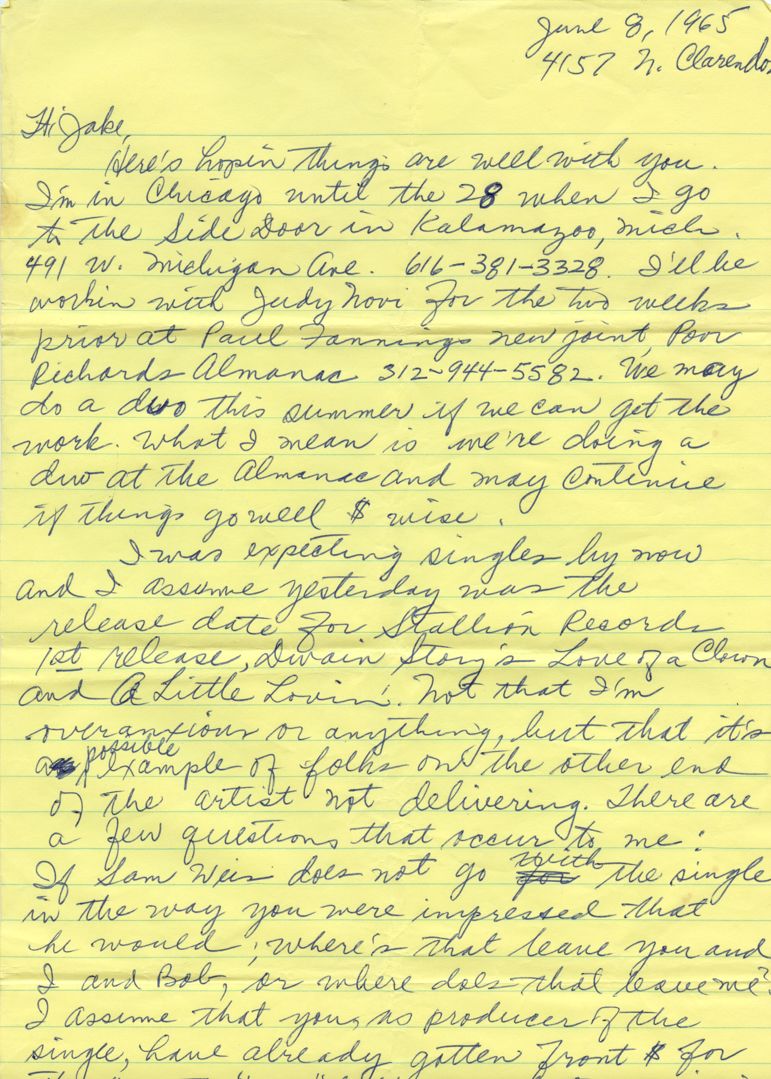 June 8, 1965
4157 N. Clarendon
Hi Jake,
Here's hopin things are well with you.
I'm in Chicago until the 28 when I go
to the Side Door in Kalamazoo, Mich.
491 W. Michigan Ave. 616-381-3328. I'll be
workin with Judy Novi for the two weeks
prior at Paul Fannings new joint, Poor
Richards Almanac 312-944-5582. We may
do a duo this summer if we can get the
work. What I mean is we're doing a
duo at the Almanac and may continue
if things go well $ wise.
I was expecting singles by now
and I assume yesterday was the
release date for Stallion Records
1st release, Dwain Story's Love of a Clown
and A Little Lovin'. Not that I'm
overanxious or anything, but that it's
a possible example of folks on the other end
of the artist not delivering. There are
a few questions that occur to me:
If Sam Weis does not go with the single
in the way you were impressed that
he would, where's that leave you and
I and Bob, or where does that leave me?
I assume that you, as producer of the
single, have already gotten front $ for